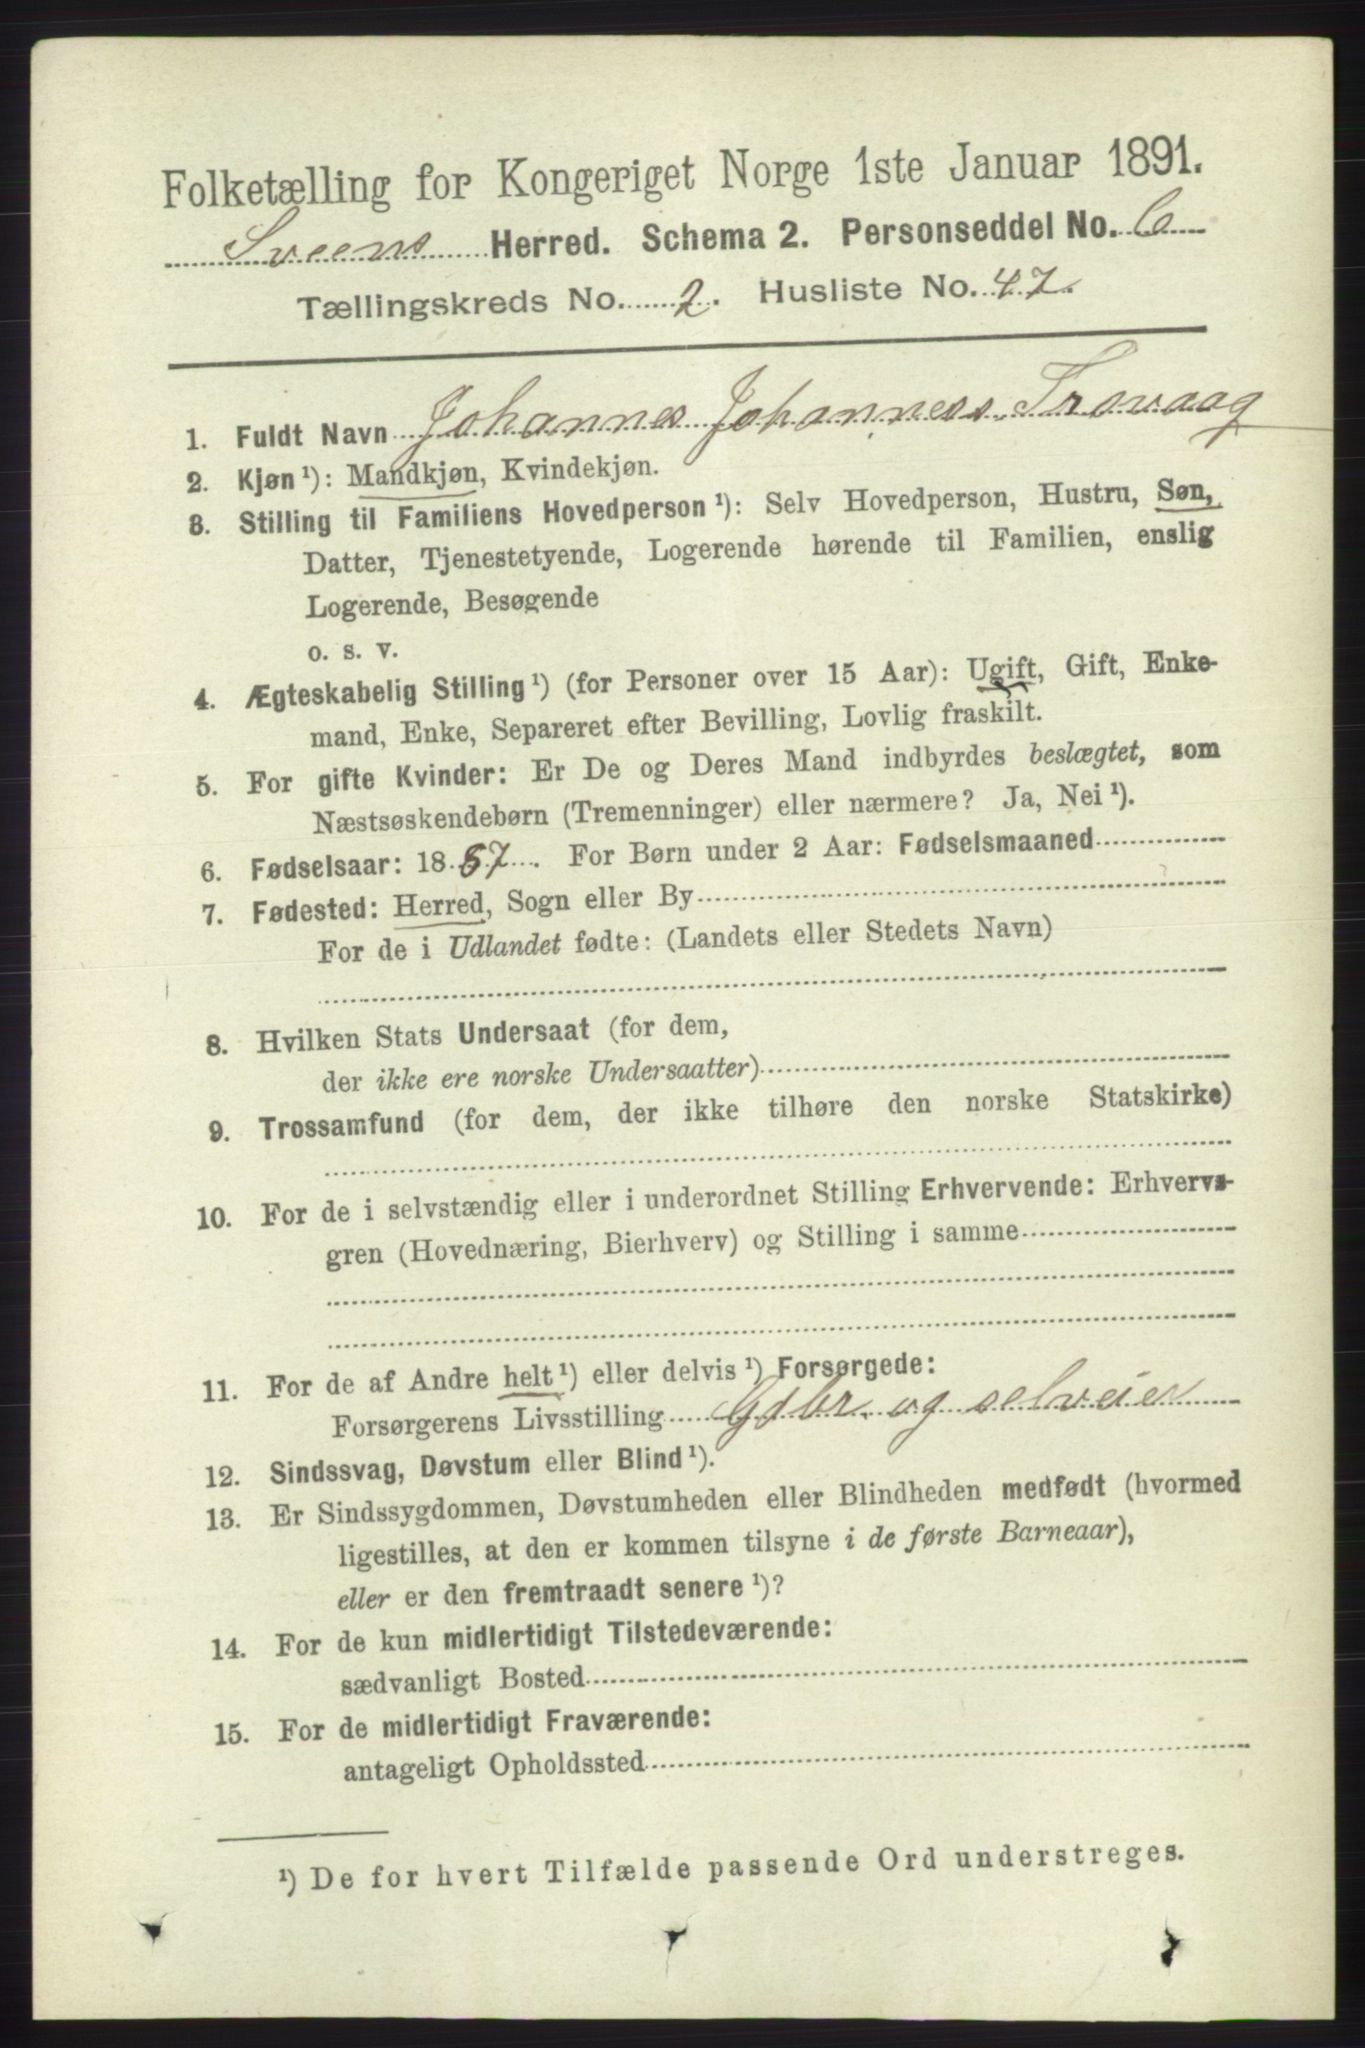 Folketælling for Kongeriget Norge 1ste Januar 1891.
Sveens Herred. Schema 2. Personseddel No. 6
Tællingskreds No. 2. Husliste No. 47.
1. Fuldt Navn Johannes Johanness. Trovaag
2. Kjøn ¹): Mandkjøn, Kvindekjøn.
3. Stilling til Familiens Hovedperson ¹): Selv Hovedperson, Hustru, Søn,
Datter, Tjenestetyende, Logerende hørende til Familien, enslig
Logerende, Besøgende
o. s. v.
4. Ægteskabelig Stilling ¹) (for Personer over 15 Aar): Ugift, Gift, Enke-
mand, Enke, Separeret efter Bevilling, Lovlig fraskilt.
5. For gifte Kvinder: Er De og Deres Mand indbyrdes beslægtet, som
Næstsøskendebørn (Tremenninger) eller nærmere? Ja, Nei ¹).
6. Fødselsaar: 1887. For Børn under 2 Aar: Fødselsmaaned
7. Fødested: Herred, Sogn eller By
For de i Udlandet fødte: (Landets eller Stedets Navn)
8. Hvilken Stats Undersaat (for dem,
der ikke ere norske Undersaatter)
9. Trossamfund (for dem, der ikke tilhøre den norske Statskirke)
10. For de i selvstændig eller i underordnet Stilling Erhvervende: Erhvervs-
gren (Hovednæring, Bierhverv) og Stilling i samme
11. For de af Andre helt ¹) eller delvis ¹) Forsørgede:
Forsørgerens Livsstilling Gdbr. og selveier
12. Sindssvag, Døvstum eller Blind ¹).
13. Er Sindssygdommen, Døvstumheden eller Blindheden medfødt (hvormed
ligestilles, at den er kommen tilsyne i de første Barneaar),
eller er den fremtraadt senere ¹)?
14. For de kun midlertidigt Tilstedeværende:
sædvanligt Bosted
15. For de midlertidigt Fraværende:
antageligt Opholdssted
¹) De for hvert Tilfælde passende Ord understreges.